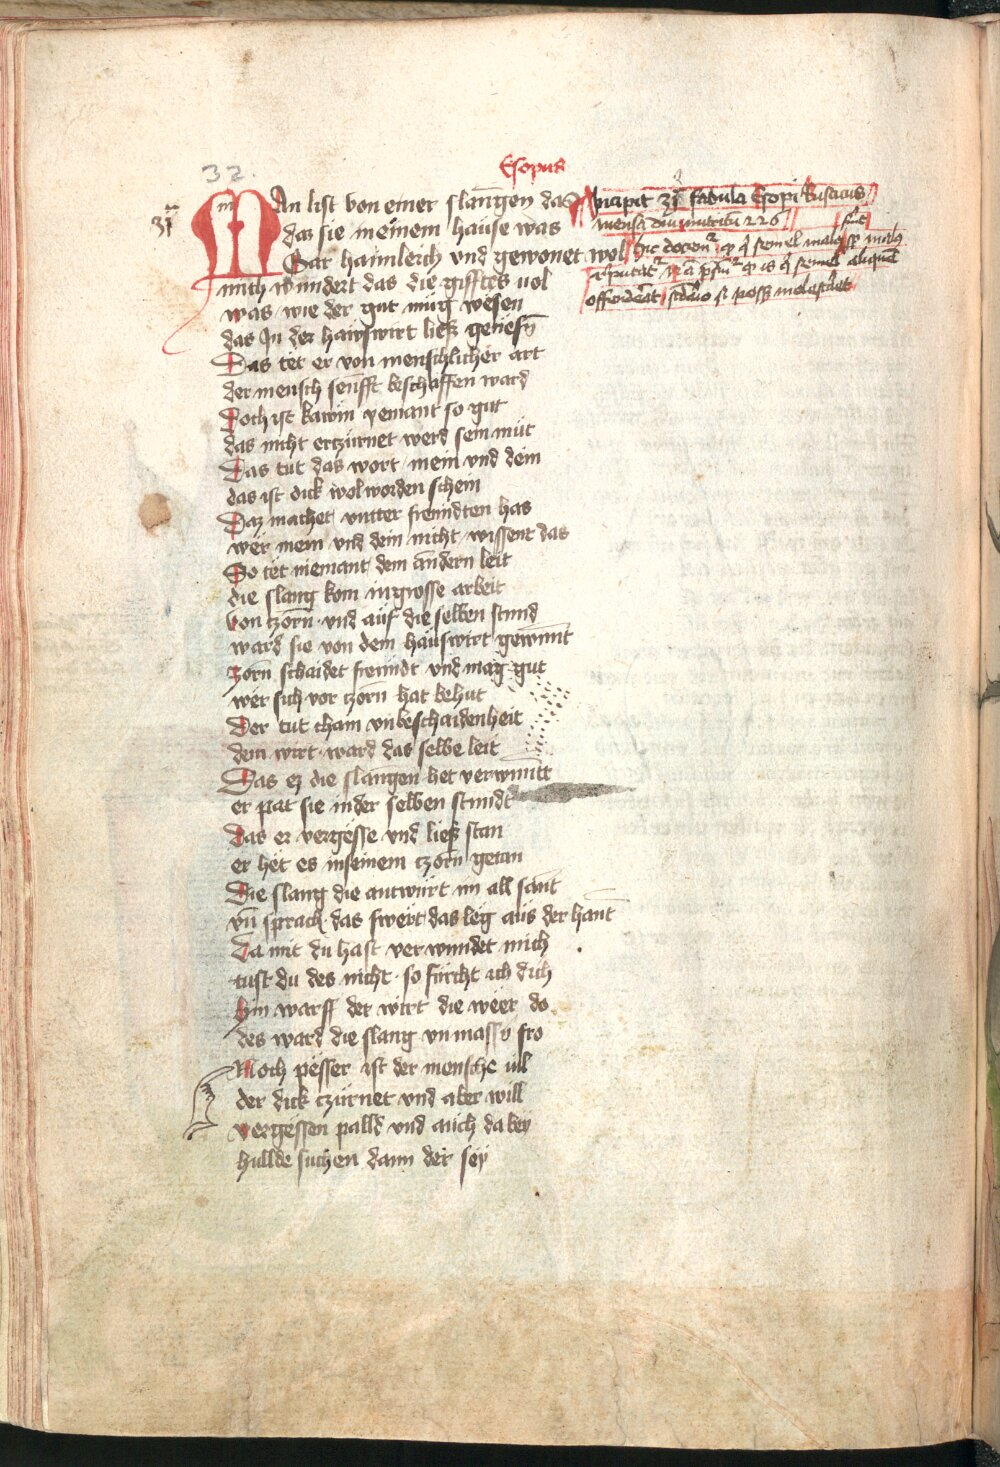 32.
Esopus
31
MAn list von einer slangen das
das sie in einem hause was
Gar haimleich vnd gewonet wol
mich wundert das die gifftes uol
was wie der gut mug wesen
das In der hawswirt liesz genesen
Das tet er von menschlicher art
der mensch senfft beschaffen ward
Doch ist kawm yemant so gut
das nicht ertzürnet werd sein müt
Das tut das wort mein vnd dein
das ist dick wol worden schein
Daz machet vntter freundten has
wer mein vnd dein nicht wissent das
So tet niemant dem andern leit
die slang kom in grosse arbeit
von tzorn vnd auf die selben stund
ward sie von dem hauswirt gewunt
Zorn schaidet freundt vnd mag gut
wer sich vor tzorn hat behut
Der tut cham vnbeschaidenheit
dem wirt ward das selbe leit
Das ez die slangen het verwuntt
er pat sie in der selben stundt
Das er vergesse vnd liesz stan
er het es in seinem tzorn getan
Die slang die antwurt im all sant
vn sprach das swert das leg aus der hant
Da mit du hast verwundet mich
tust du des nicht so fürcht ich dich
Hin warff der wirt die weer do
des ward die slang vnmasso fro
Noch pesser ist der mensche uil
der dick tzürnet vnd aber will
vergessen palld vnd auch da bey
hullde suchen dann der sey
Incipit 31 fabula Esopi Rusticus
mensa diu nutritu 226
Hic docemur q q semel malus semper malus
reputatur q is q semel aliquem
offenderat secundario si posset molestaret